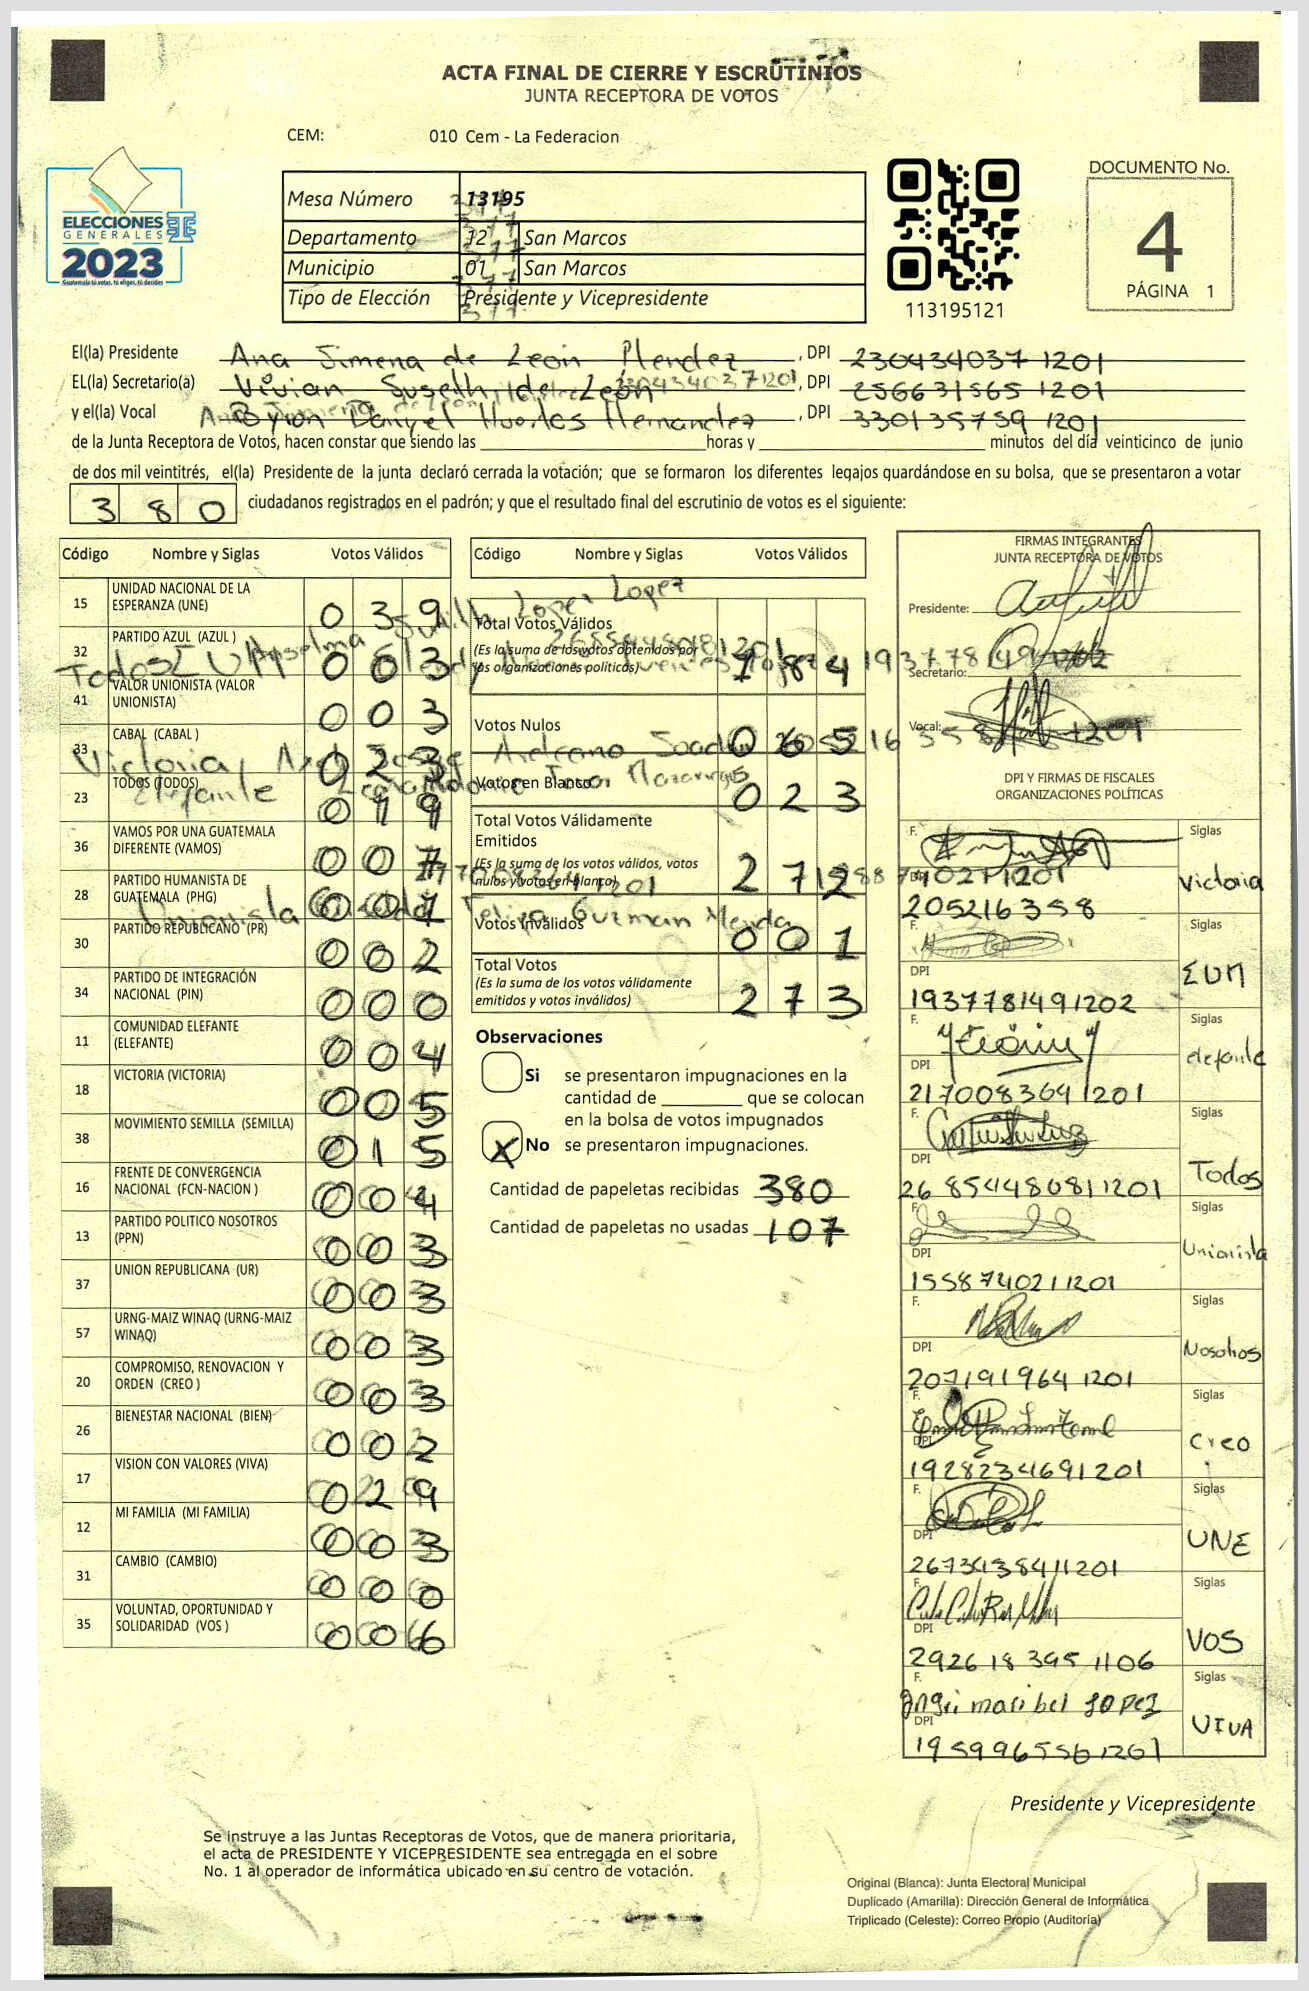 ACTA FINAL DE CIERRE Y ESCRUTINIOS
JUNTA RECEPTORA DE VOTOS
CEM: 010 Cem - La Federacion
ELECCIONES
GENERALES
2023
Guatemala tú votas, tú eliges, tú decides
Mesa Número 13195
Departamento 12 San Marcos
Municipio 01 San Marcos
Tipo de Elección Presidente y Vicepresidente
113195121
DOCUMENTO No.
4
PÁGINA 1
El(la) Presidente Ana Jimena de León Mendez, DPI 230434037 1201
EL(la) Secretario(a) Vivian Suseth de León, DPI 256631565 1201
y el(la) Vocal Byron Danyel Huertas Hernandez, DPI 330135759 1201
de la Junta Receptora de Votos, hacen constar que siendo las horas y minutos del día veinticinco de junio
de dos mil veintitrés, el(la) Presidente de la junta declaró cerrada la votación; que se formaron los diferentes legajos guardándose en su bolsa, que se presentaron a votar
380 ciudadanos registrados en el padrón; y que el resultado final del escrutinio de votos es el siguiente:
Código Nombre y Siglas Votos Válidos
15 UNIDAD NACIONAL DE LA ESPERANZA (UNE) 0 3 9
32 PARTIDO AZUL (AZUL ) 0 0 3
41 VALOR UNIONISTA (VALOR UNIONISTA) 0 0 3
33 CABAL (CABAL ) 0 2 3
23 TODOS (TODOS) 0 1 9
36 VAMOS POR UNA GUATEMALA DIFERENTE (VAMOS) 0 0 7
28 PARTIDO HUMANISTA DE GUATEMALA (PHG) 0 0 1
30 PARTIDO REPUBLICANO (PR) 0 0 2
34 PARTIDO DE INTEGRACIÓN NACIONAL (PIN) 0 0 0
11 COMUNIDAD ELEFANTE (ELEFANTE) 0 0 4
18 VICTORIA (VICTORIA) 0 0 5
38 MOVIMIENTO SEMILLA (SEMILLA) 0 1 5
16 FRENTE DE CONVERGENCIA NACIONAL (FCN-NACION ) 0 0 4
13 PARTIDO POLITICO NOSOTROS (PPN) 0 0 3
37 UNION REPUBLICANA (UR) 0 0 3
57 URNG-MAIZ WINAQ (URNG-MAIZ WINAQ) 0 0 3
20 COMPROMISO, RENOVACION Y ORDEN (CREO ) 0 0 3
26 BIENESTAR NACIONAL (BIEN) 0 0 2
17 VISION CON VALORES (VIVA) 0 2 9
12 MI FAMILIA (MI FAMILIA) 0 0 3
31 CAMBIO (CAMBIO) 0 0 0
35 VOLUNTAD, OPORTUNIDAD Y SOLIDARIDAD (VOS ) 0 0 6
Código Nombre y Siglas Votos Válidos
Total Votos Válidos
(Es la suma de los votos obtenidos por
las organizaciones políticas) 1 8 4
Votos Nulos 0 6 5
Votos en Blanco 0 2 3
Total Votos Válidamente
Emitidos
(Es la suma de los votos válidos, votos
nulos y votos en blanco) 2 7 2
Votos Inválidos 0 0 1
Total Votos
(Es la suma de los votos válidamente
emitidos y votos inválidos) 2 7 3
Observaciones
Si se presentaron impugnaciones en la
cantidad de que se colocan
en la bolsa de votos impugnados
X No se presentaron impugnaciones.
Cantidad de papeletas recibidas 380
Cantidad de papeletas no usadas 107
FIRMAS INTEGRANTES
JUNTA RECEPTORA DE VOTOS
Presidente:
Secretario:
Vocal:
DPI Y FIRMAS DE FISCALES
ORGANIZACIONES POLÍTICAS
F. Siglas
Victoria
205216358
F. Siglas
DPI EUM
1937781491202
F. Siglas
DPI elefante
217008364 1201
F. Siglas
DPI Todos
26 854480811201
F. Siglas
DPI Unionista
1558740211201
F. Siglas
DPI Nosotros
207191964 1201
F. Siglas
DPI Creo
1928234691201
F. Siglas
DPI UNE
2673438411201
F. Siglas
DPI VOS
292618 395 1106
F. Siglas
Angri maribel lopez
DPI VIVA
1959965561201
Presidente y Vicepresidente
Se instruye a las Juntas Receptoras de Votos, que de manera prioritaria,
el acta de PRESIDENTE Y VICEPRESIDENTE sea entregada en el sobre
No. 1 al operador de informática ubicado en su centro de votación.
Original (Blanca): Junta Electoral Municipal
Duplicado (Amarilla): Dirección General de Informática
Triplicado (Celeste): Correo Propio (Auditoría)